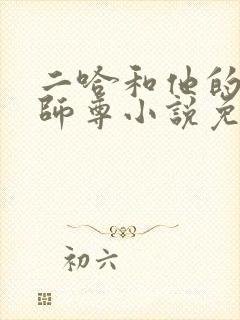 二哈和他的
師尊小說免
初六